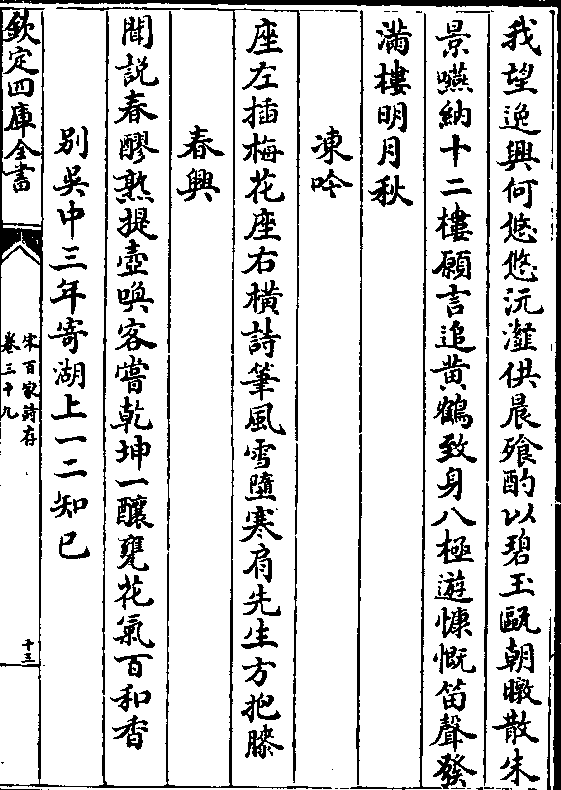 我望逸興何悠悠沆瀣供晨飱酌以碧玉甌朝暾散朱
景嚥納十二樓願言追黄鶴致身八極遊慷慨笛聲發
滿樓明月秋
凍吟
座左插梅花座右横詩筆風雪墮寒肩先生方抱膝
春興
聞說春醪熟提壺喚客嘗乾坤一釀甕花氣百和香
别吳中三年寄湖上一二知己
欽定四庫全書
宋百家詩存
卷三十九
十三